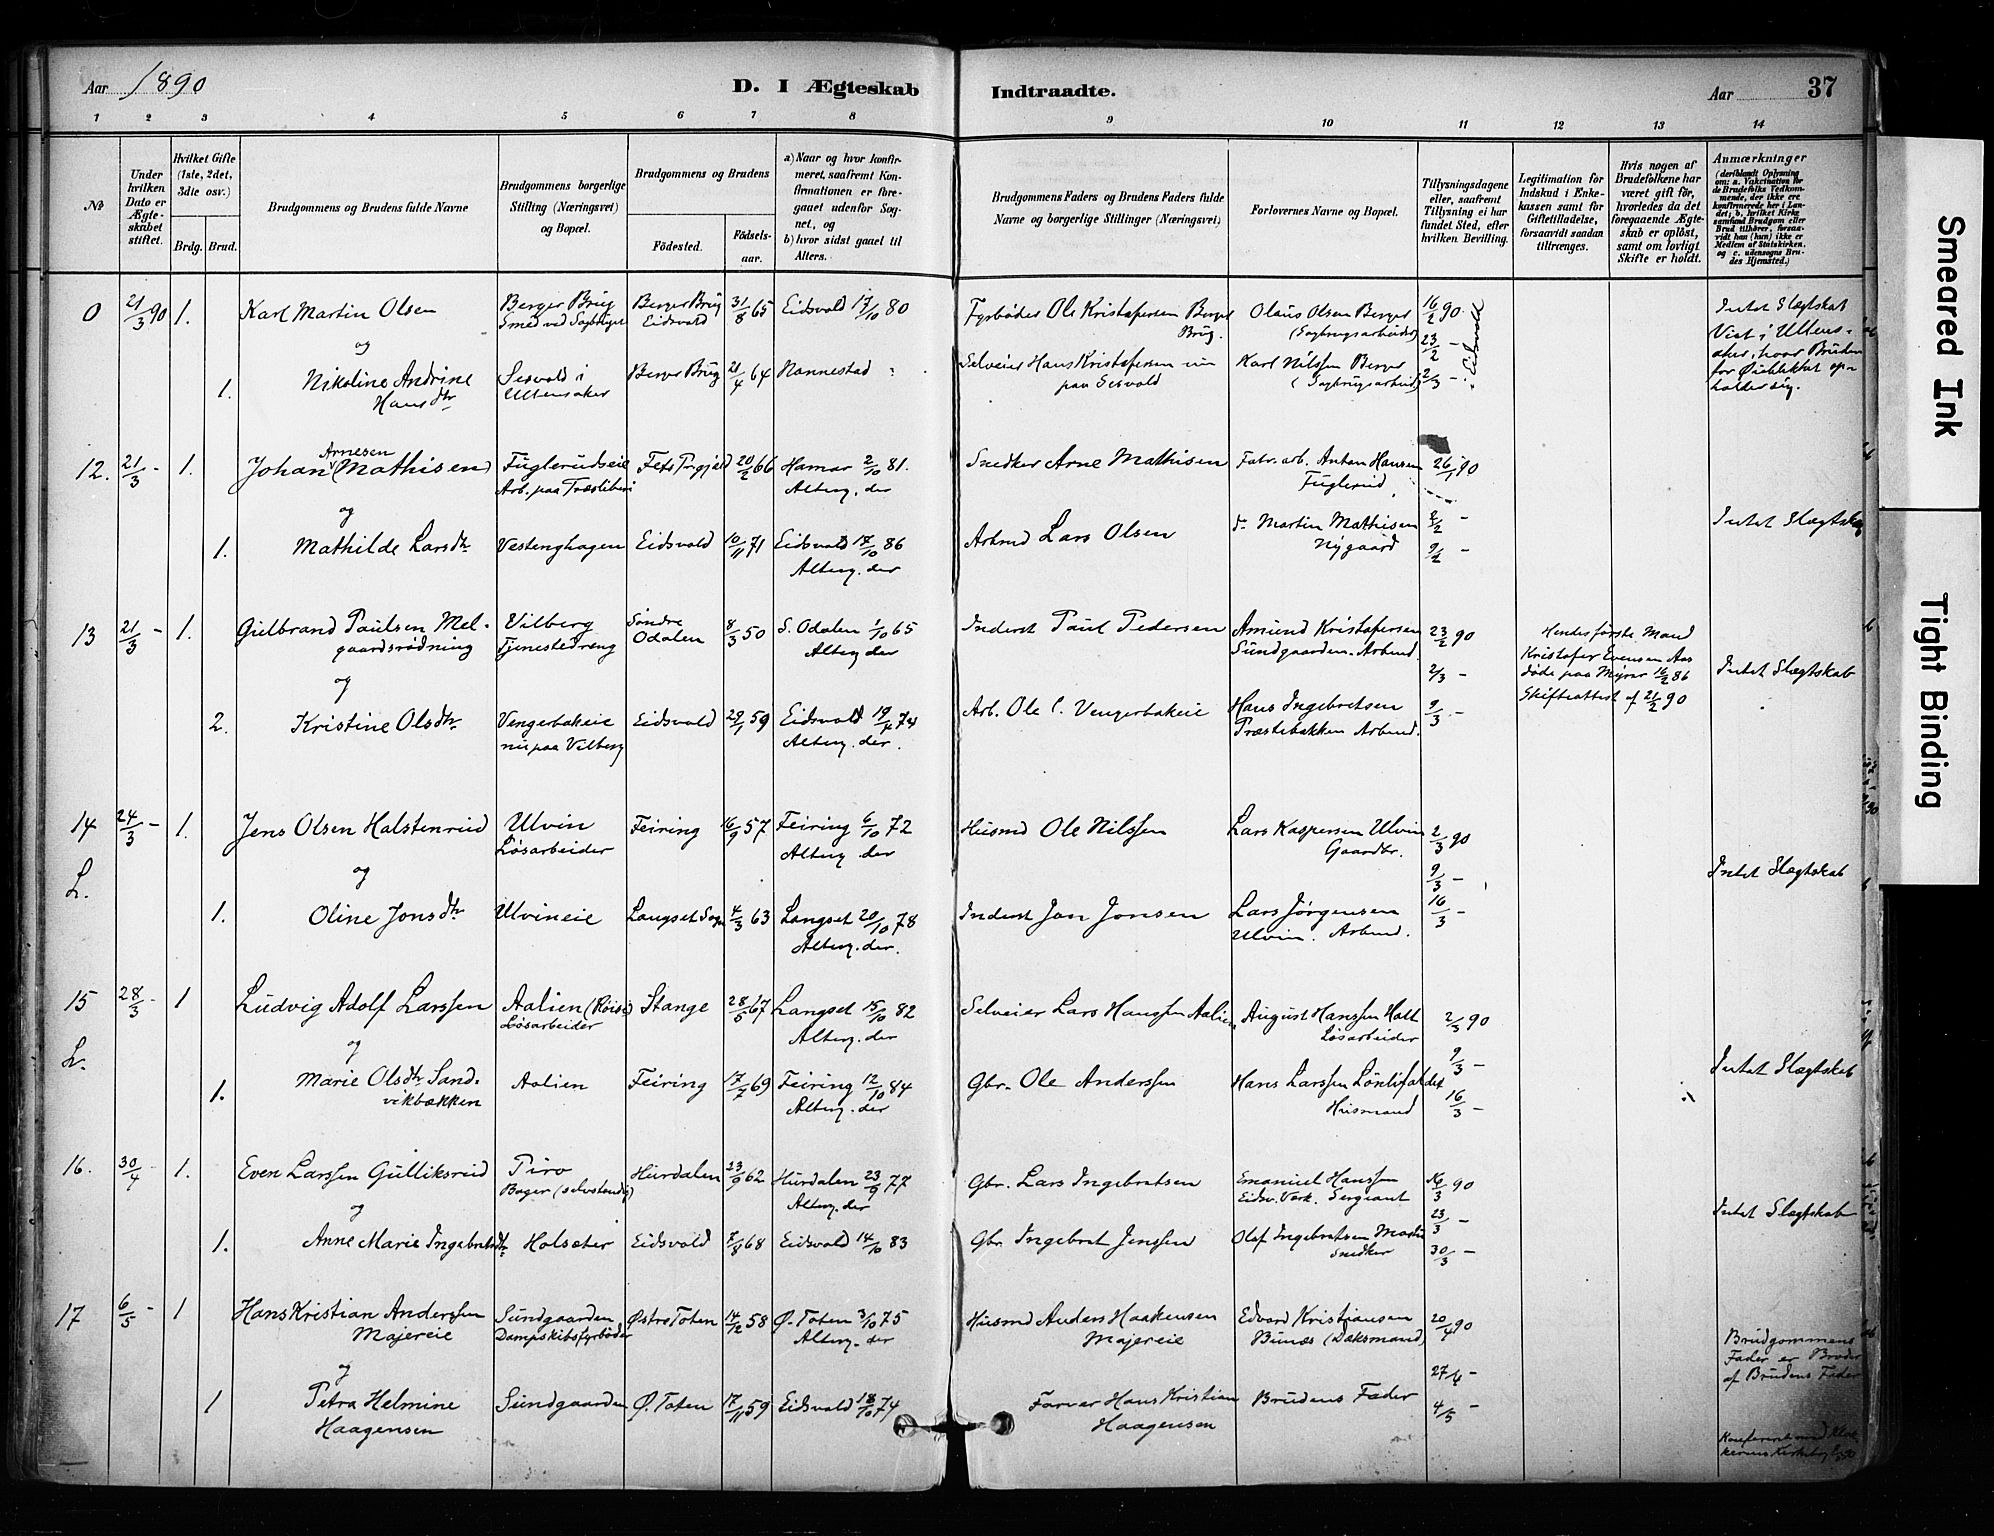 Aar 1890
D. I Ægteskab Indtraadte.
Aar 37
1 2 3 4 5 6 7 8 9 10 11 12 13 14
№
Under hvilken Dato er Ægteskabet stiftet.
Hvilket Gifte (1ste, 2det, 3die osv.)
Brdg. Brud.
Brudgommens og Brudens fulde Navne
Brudgommens borgerlige Stilling (Næringsvei) og Bopæl.
Brudgommens og Brudens
Födested. Födselsaar.
a) Naar og hvor konfirmeret, saafremt Konfirmationen er foregaaet udenfor Sognet, og
b) hvor sidst gaaet til Alters.
Brudgommens Faders og Brudens Faders fulde Navne og borgerlige Stillinger (Næringsvei)
Forlovernes Navne og Bopæl.
Tillysningsdagene eller, saafremt Tillysning ei har fundet Sted, efter hvilken Bevilling.
Legitimation for Indskud i Enkekassen samt for Giftetilladelse, forsaavidt saadan tiltrænges.
Hvis nogen af Brudefolkene har været gift för, hvorledes da det foregaaende Ægteskab er oplöst, samt om lovligt Skifte er holdt.
Anmærkninger (deriblandt Oplysning om: a. Vakcination for de Brudefolks Vedkommende, der ikke ere konfirmerede her i Landet; b. hvilket Kirkesamfund Brudgom eller Brud tilhörer, forsaavidt han (hun) ikke er Medlem af Statskirken, og c. udensogns Brudes Hjemsted.)
0 21/3 90 1. Karl Martin Olsen Berger Brug Berger Brug 31/8 65 Eidsvold 17/10 80 Fyrbøder Ole Kristofersen Berger Olaus Olsen Berger 16/2 90 Intet Slegtskab
Smed ved Eidsvold Brug. (Sagbrugsarbeider) 23/2 - Viet i Ullens-
og
aker, hvor Bruden
1. Nikoline Andrine Sesvold i Berger Brug 21/4 64 Nannestad Selveier Hans Kristofersen Karl Nilssen Berger 2/3 - Eidsvold for Øieblikket op-
Hansdtr Ullensaker paa Sesvold (Sagbrugsarbeid) holder sig.
12. 21/3 - 1. Johan Arnesen (Mathisen) Fuglerudseie Fets Prgjeld 20/2 66 Hamar 2/10 81. Snedker Arne Mathisen Fabr. arb. Anton Hansen 26/1 90
Arb. paa Træsliberi Alterg. der Fuglerud
og
2/2 - Intet Slægtskab
1. Mathilde Larsdtr Vestenghagen Eidsvold 10/11 71 Eidsvold 17/10 86 Arbmd Lars Olsen do Martin Mathisen
Alterg. der Nygaard 9/2 -
13 21/3 - 1. Gulbrand Paulsen Mel- Vilberg Søndre 8/3 50 S. Odalen 1/10 65 Inderst Paul Pedersen Amund Kristofersen 23/2 90 Hendes første Mand
gaardsrødning Tjenestedreng Odalen Alterg der Sundgaarden. Arbmd. Kristofer Evensen Aas
og
2/3 - døde paa Myrer 16/2 86 Intet Slægtskab
2. Kristine Olsdtr Vengerbakeie Eidsvold 29/1 59 Eidsvold 19/4 74 Arb. Ole C. Vengerbakeie Hans Ingebretsen 9/3 - Skifteattest af 21/2 90
nu paa Vilberg Alterg. der. Præstebakken Arbmd.
14 24/3 - 1. Jens Olsen Halstenrud Ulvin Feiring 16/9 57 Feiring 6/10 72 Husmd Ole Nilssen Lars Kaspersen Ulvin 2/3 90
Løsarbeider Alterg. der Gaardbr.
L. og
9/3 - Intet Slegtskab
1. Oline Jonsdtr Ulvineie Langset Sogn 4/3 63 Langset 20/10 78 Inderst Jon Jonsen Lars Jørgensen 16/3 -
Alterg. der. Ulvin. Arbmd.
15 28/3 - 1 Ludvig Adolf Larssen Aalien (Røisi) Stange 28/5 67 Langset 15/10 82 Selveier Lars Hanssen Aalien August Hanssen Holt 2/3 90
Løsarbeider Alterg. der Løsarbeider
L. og
9/3 - Intet Slægtskab
1. Marie Olsdtr Sand- Aalien Feiring 17/7 69 Feiring 12/10 84 Gbr. Ole Anderssen Hans Larssen 16/3 -
vikbækken Alterg. der Husmand
16. 30/4 - 1. Even Larssen Gulliksrud Piro Hurdalen 23/9 62 Hurdalen 23/9 77 Gbr. Lars Ingebretsen Emanuel Hanssen 16/3 90
Bager (selvstendig) Alterg. der Eidsv. Værk. Sergeant
og
23/3 - Intet Slegtskab
1. Anne Marie Ingebretsdtr Holseter Eidsvold 8/8 68 Eidsvold 14/10 83 Gbr Ingebret Jenssen Olaf Ingebretsen 30/3 -
Snedker
17 6/5 - 1 Hans Kristian Anderssen Sundgaarden Østre Toten 14/12 58 Ø. Toten 3/10 75 Husmd Anders Haakensen Edvard Kristiansen 20/4 90
Majereie Dampskibsfyrbøder Alterg. der Majereie Bunæs (Daksmand) Brudgommens
og
27/4 - Fader er Broder
1 Petra Helmine Sundgaarden Ø. Toten 17/11 59 Eidsvold 18/10 74 Farver Hans Kristian Brudens Fader 4/5 - af Brudens Fader
Haagensen Haagensen
Konfereret med Klok-
kerens Kirkebog
Smeared Ink
Tight Binding